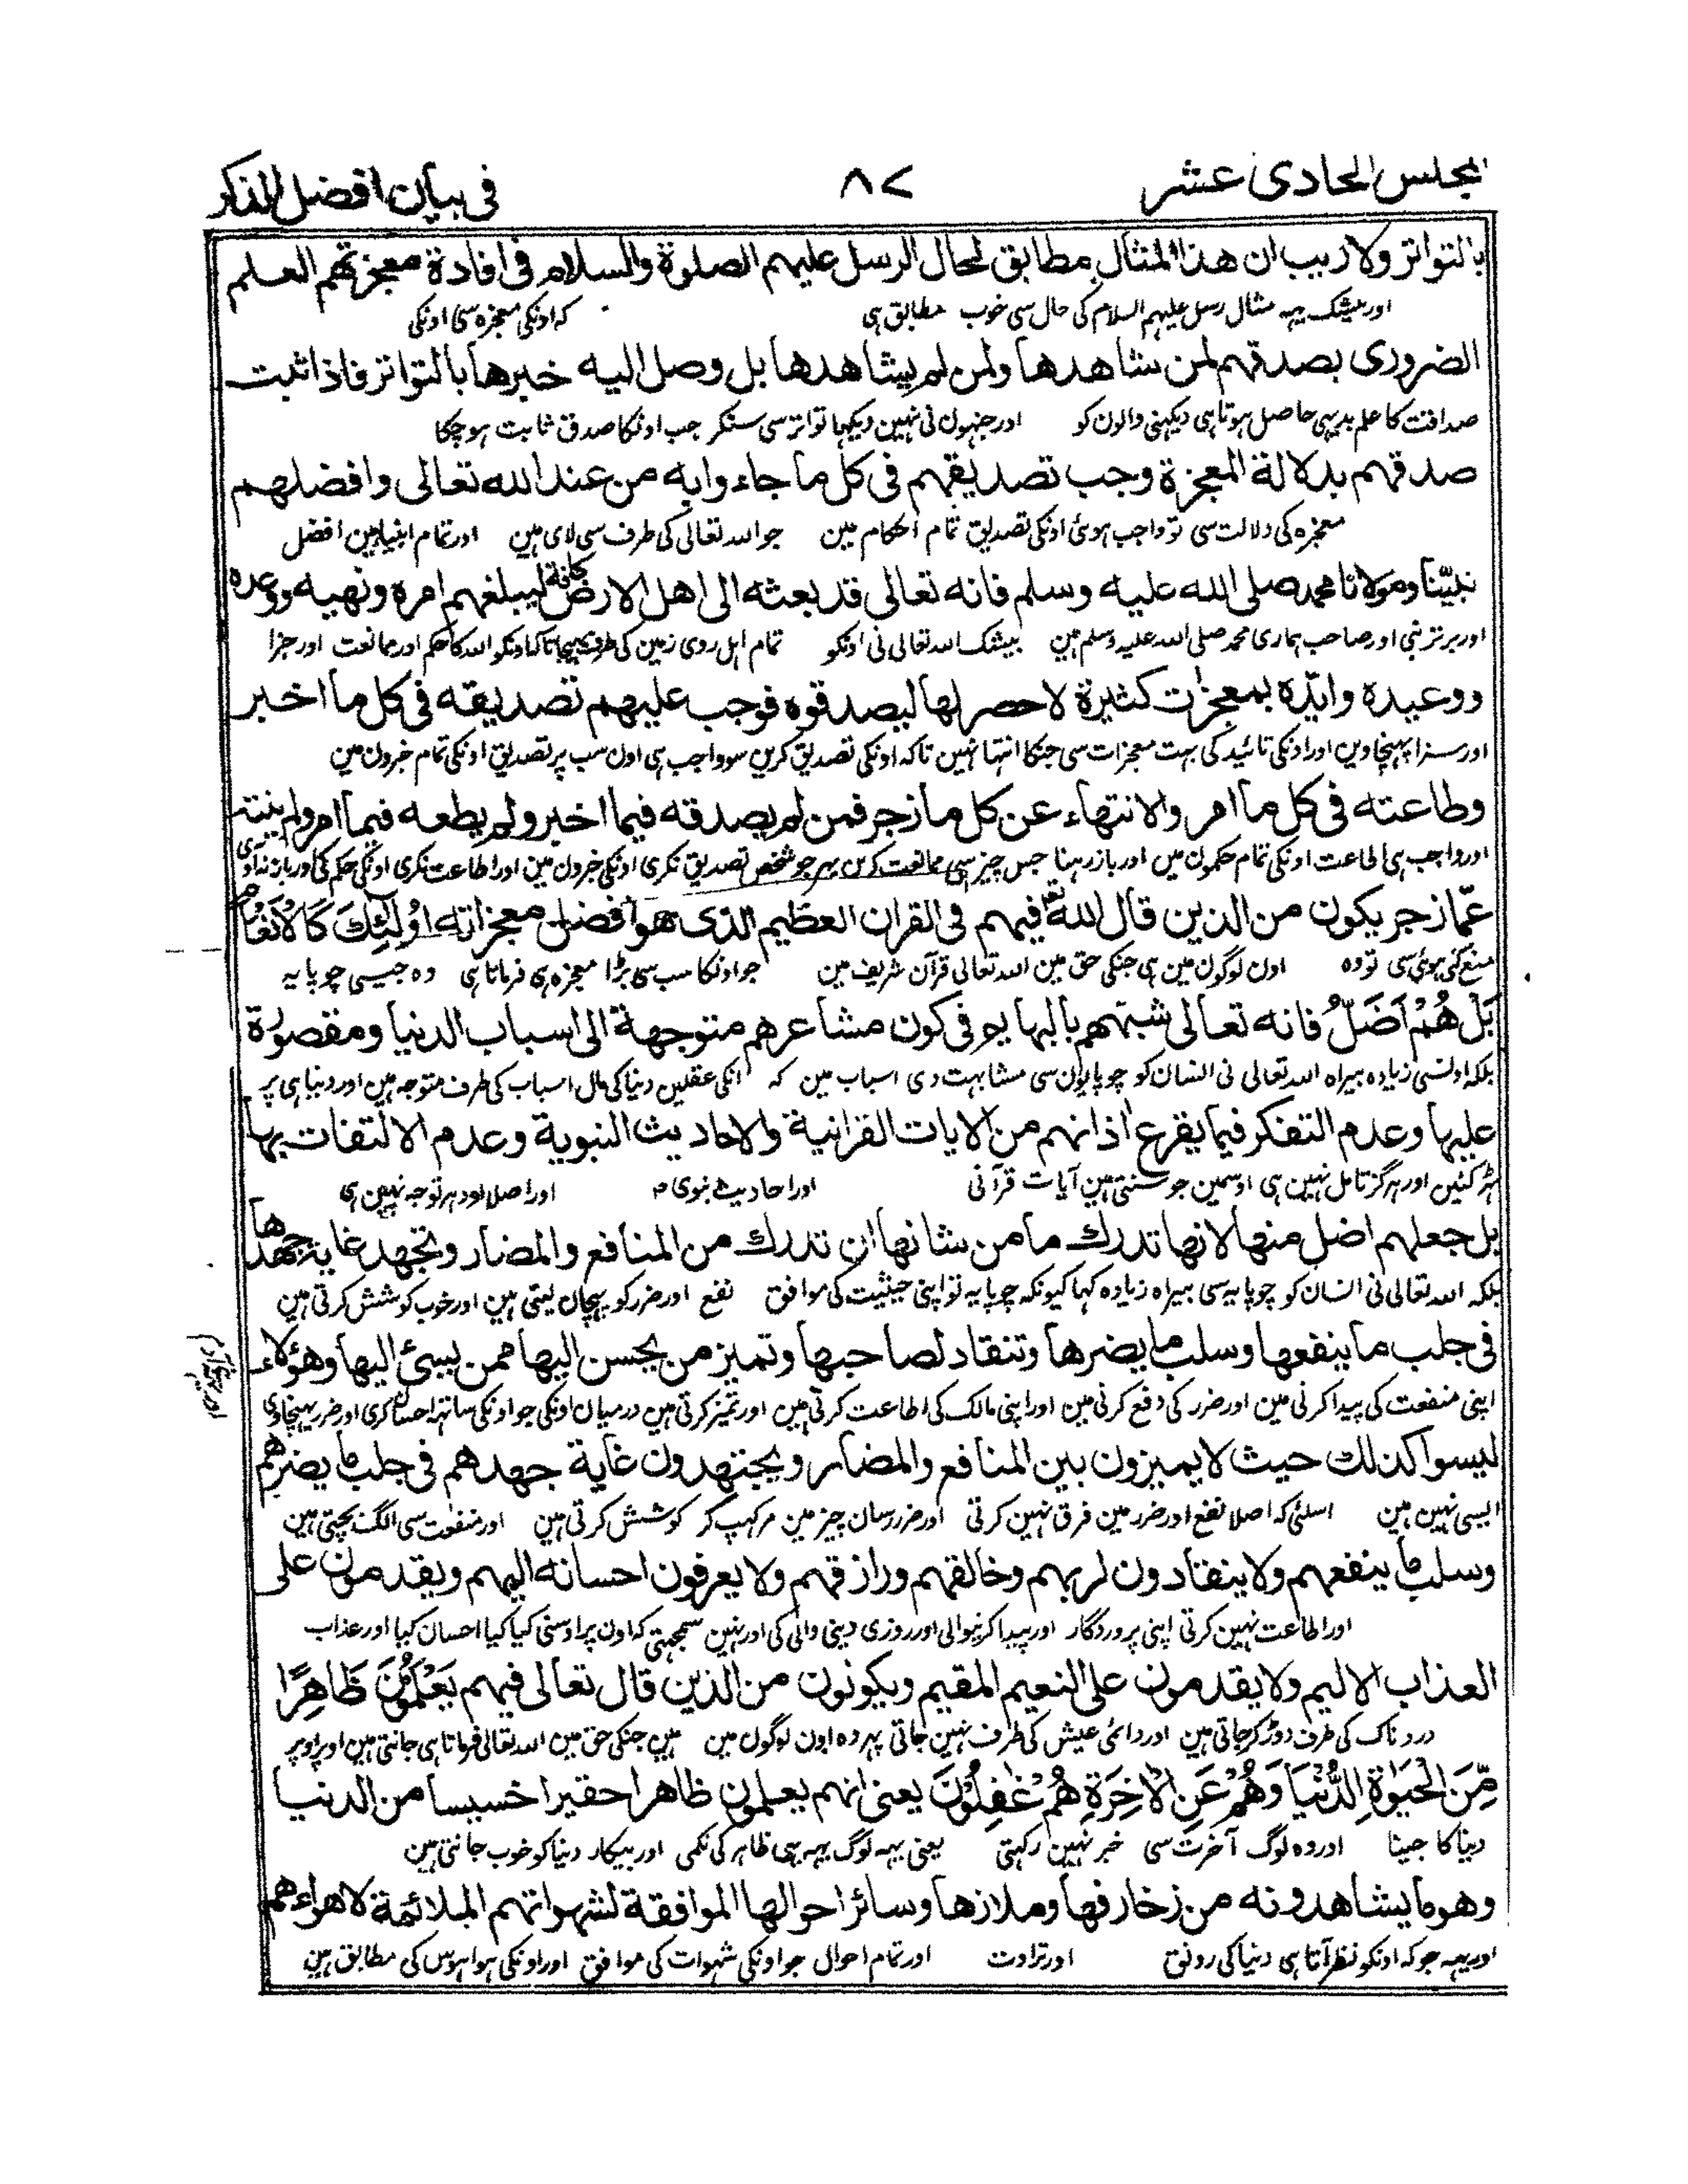 المجلس الحادی عشر
۸۷
فی بیان افضل الذکر
بالتواتر ولا ریب ان هذا المثال مطابق لحال الرسل علیهم الصلوة والسلام فی افادة معجزتهم العلم
اور بیشک یہہ مثال رسل علیہم السلام کی حال سی خوب مطابق ہی کہ اونکی معجزہ سی اونکی
الضروری بصدقهم لمن شاهدها ولمن لم یشاهدها بل وصل الیه خبرها بالتواتر فاذا ثبت
صداقت کا علم بدیہی حاصل ہوتا ہی دیکہنی والون کو اور جنہون نی نہین دیکہا تواتر سی سنکر جب اونکا صدق ثابت ہوچکا
صدقهم بدلالة المعجزة وجب تصدیقهم فی کل ما جاءوا به من عند الله تعالی وافضلهم
معجزہ کی دلالت سی تو واجب ہوئی اونکی تصدیق تمام احکام مین جو اللہ تعالی کی طرف سی لای ہین اور تمام انبیا مین افضل
نبیّنا ومولانا محمد صلی الله علیه وسلم فانه تعالی قد بعثه الی اهل الارض کافة لیبلغهم امره ونهیه ووعده
اور برتر نبی اور صاحب ہماری محمد صلی اللہ علیہ وسلم ہین بیشک اللہ تعالی نی اونکو تمام اہل روی زمین کی طرف بہیجا تاکہ اونکو اللہ کا حکم اور ممانعت اور جزا
ووعیده وایّده بمعجزات کثیرة لا حصر لها لیصدقوه فوجب علیهم تصدیقه فی کل ما اخبر
اور سزا پہنچاوین اور اونکی تائید کی بہت معجزات سی جنکا انتہا نہین تاکہ اونکی تصدیق کرین سو واجب ہی اون سب پر تصدیق اونکی تمام خبرون مین
وطاعته فی کل ما امر والانتهاء عن کل ما زجر فمن لم یصدقه فیما اخبر ولم یطعه فیما امر ولم ینته
اور واجب ہی اطاعت اونکی تمام حکمون مین اور باز رہنا جس چیز سی ممانعت کرین پہر جو شخص تصدیق نکری اونکی خبرون مین اور اطاعت نکری اونکی حکم کی اور باز نہ آوی
عمّا زجر یکون من الذین قال الله فیهم فی القران العظیم الذی هو افضل معجزاته اُولٰٓئِكَ كَالْاَنْعَامِ
منع کئی ہوئی سی تو وہ اون لوگون مین ہی جنکی حق مین اللہ تعالی قرآن شریف مین جو اونکا سب سی بڑا معجزہ ہی فرماتا ہی وہ جیسی چوپایہ
بَلْ هُمْ اَضَلُّ فانه تعالی شبّههم بالبهایم فی کون مشاعرهم متوجهة الی اسباب الدنیا ومقصورة
بلکہ اونسی زیادہ بیراہ اللہ تعالی نی انسان کو چوپایون سی مشابہت دی اسباب مین کہ انکی عقلین دنیا کی مال اسباب کی طرف متوجہ ہین اور دنیا ہی پر
علیها وعدم التفکر فیما یقرع اذانهم من الایات القرانیة والاحادیث النبویة وعدم الالتفات بها
اور ہرگز تامل نہین ہی اوسمین جو سنتی ہین آیات قرآنی اور احادیث نبوی اور اصل اودہر توجہ نہین ہی
بل جعلهم اضل منها لانها تدرك ما من شانها ان تدرك من المنافع والمضار وتجهد غایة جهدها
بلکہ اللہ تعالی نی انسان کو چوپایہ سی بیراہ زیادہ کہا کیونکہ چوپایہ تو اپنی حیثیت کی موافق نفع اور ضرر کو پہچان لیتی ہین اور خوب کوشش کرتی ہین
فی جلب ما ینفعها وسلب ما یضرها وتنقاد لصاحبها وتمیز من یحسن الیها ممن یسئ الیها وهؤلاء
اپنی منفعت کی پیدا کرنی مین اور ضرر کی دفع کرنی مین اور اپنی مالک کی اطاعت کرتی ہین اور تمیز کرتی ہین درمیان اونکی جو اونکی ساتہہ احسان کری اور ضرر پہنچاوی
لیسوا کذلك حیث لا یمیزون بین المنافع والمضار ویجتهدون غایة جهدهم فی جلب ما یضرهم
ایسی نہین ہین اسلئی کہ اصلا نفع اور ضرر مین فرق نہین کرتی اور ضرر رسان چیز مین کوشش کرتی ہین اور منفعت سی الگ بچتی ہین
وسلب ما ینفعهم ولا ینقادون لربهم وخالقهم ورازقهم ولا یعرفون احسانه الیهم ویقدمون علی
اور اطاعت نہین کرتی اپنی پروردگار اور پیدا کرنیوالی اور روزی دینی والی کی اور نہین سمجہتی کہ اون پر اوسنی کیا کیا احسان کیا اور عذاب
العذاب الالیم ولا یقدمون علی النعیم المقیم ویکونون من الذین قال تعالی فیهم یَعْلَمُوْنَ ظَاهِرًا
دردناک کی طرف دوڑ کر جاتی ہین اور دائمی عیش کی طرف نہین جاتی پہر وہ اون لوگون مین ہین جنکی حق مین اللہ تعالی فرماتا ہی جانتی ہین اوپر اوپر
مِّنَ الْحَیٰوةِ الدُّنْیَا وَهُمْ عَنِ الْاٰخِرَةِ هُمْ غٰفِلُوْنَ یعنی انهم یعلمون ظاهرا حقیرا خسیسا من الدنیا
دنیا کا جینا اور وہ لوگ آخرت سی خبر نہین رکہتی یعنی یہہ لوگ یہہ ہی ظاہر کی نکمی اور بیکار دنیا کو خوب جانتی ہین
وهو ما یشاهدونه من زخارفها وملاذها وسائر احوالها الموافقة لشهواتهم الملائمة لاهواءهم
اور یہہ جو کہ اونکو نظر آتا ہی دنیا کی رونق اور تمام احوال جو اونکی شہوات کی موافق اور اونکی ہوا ہوس کی مطابق ہین